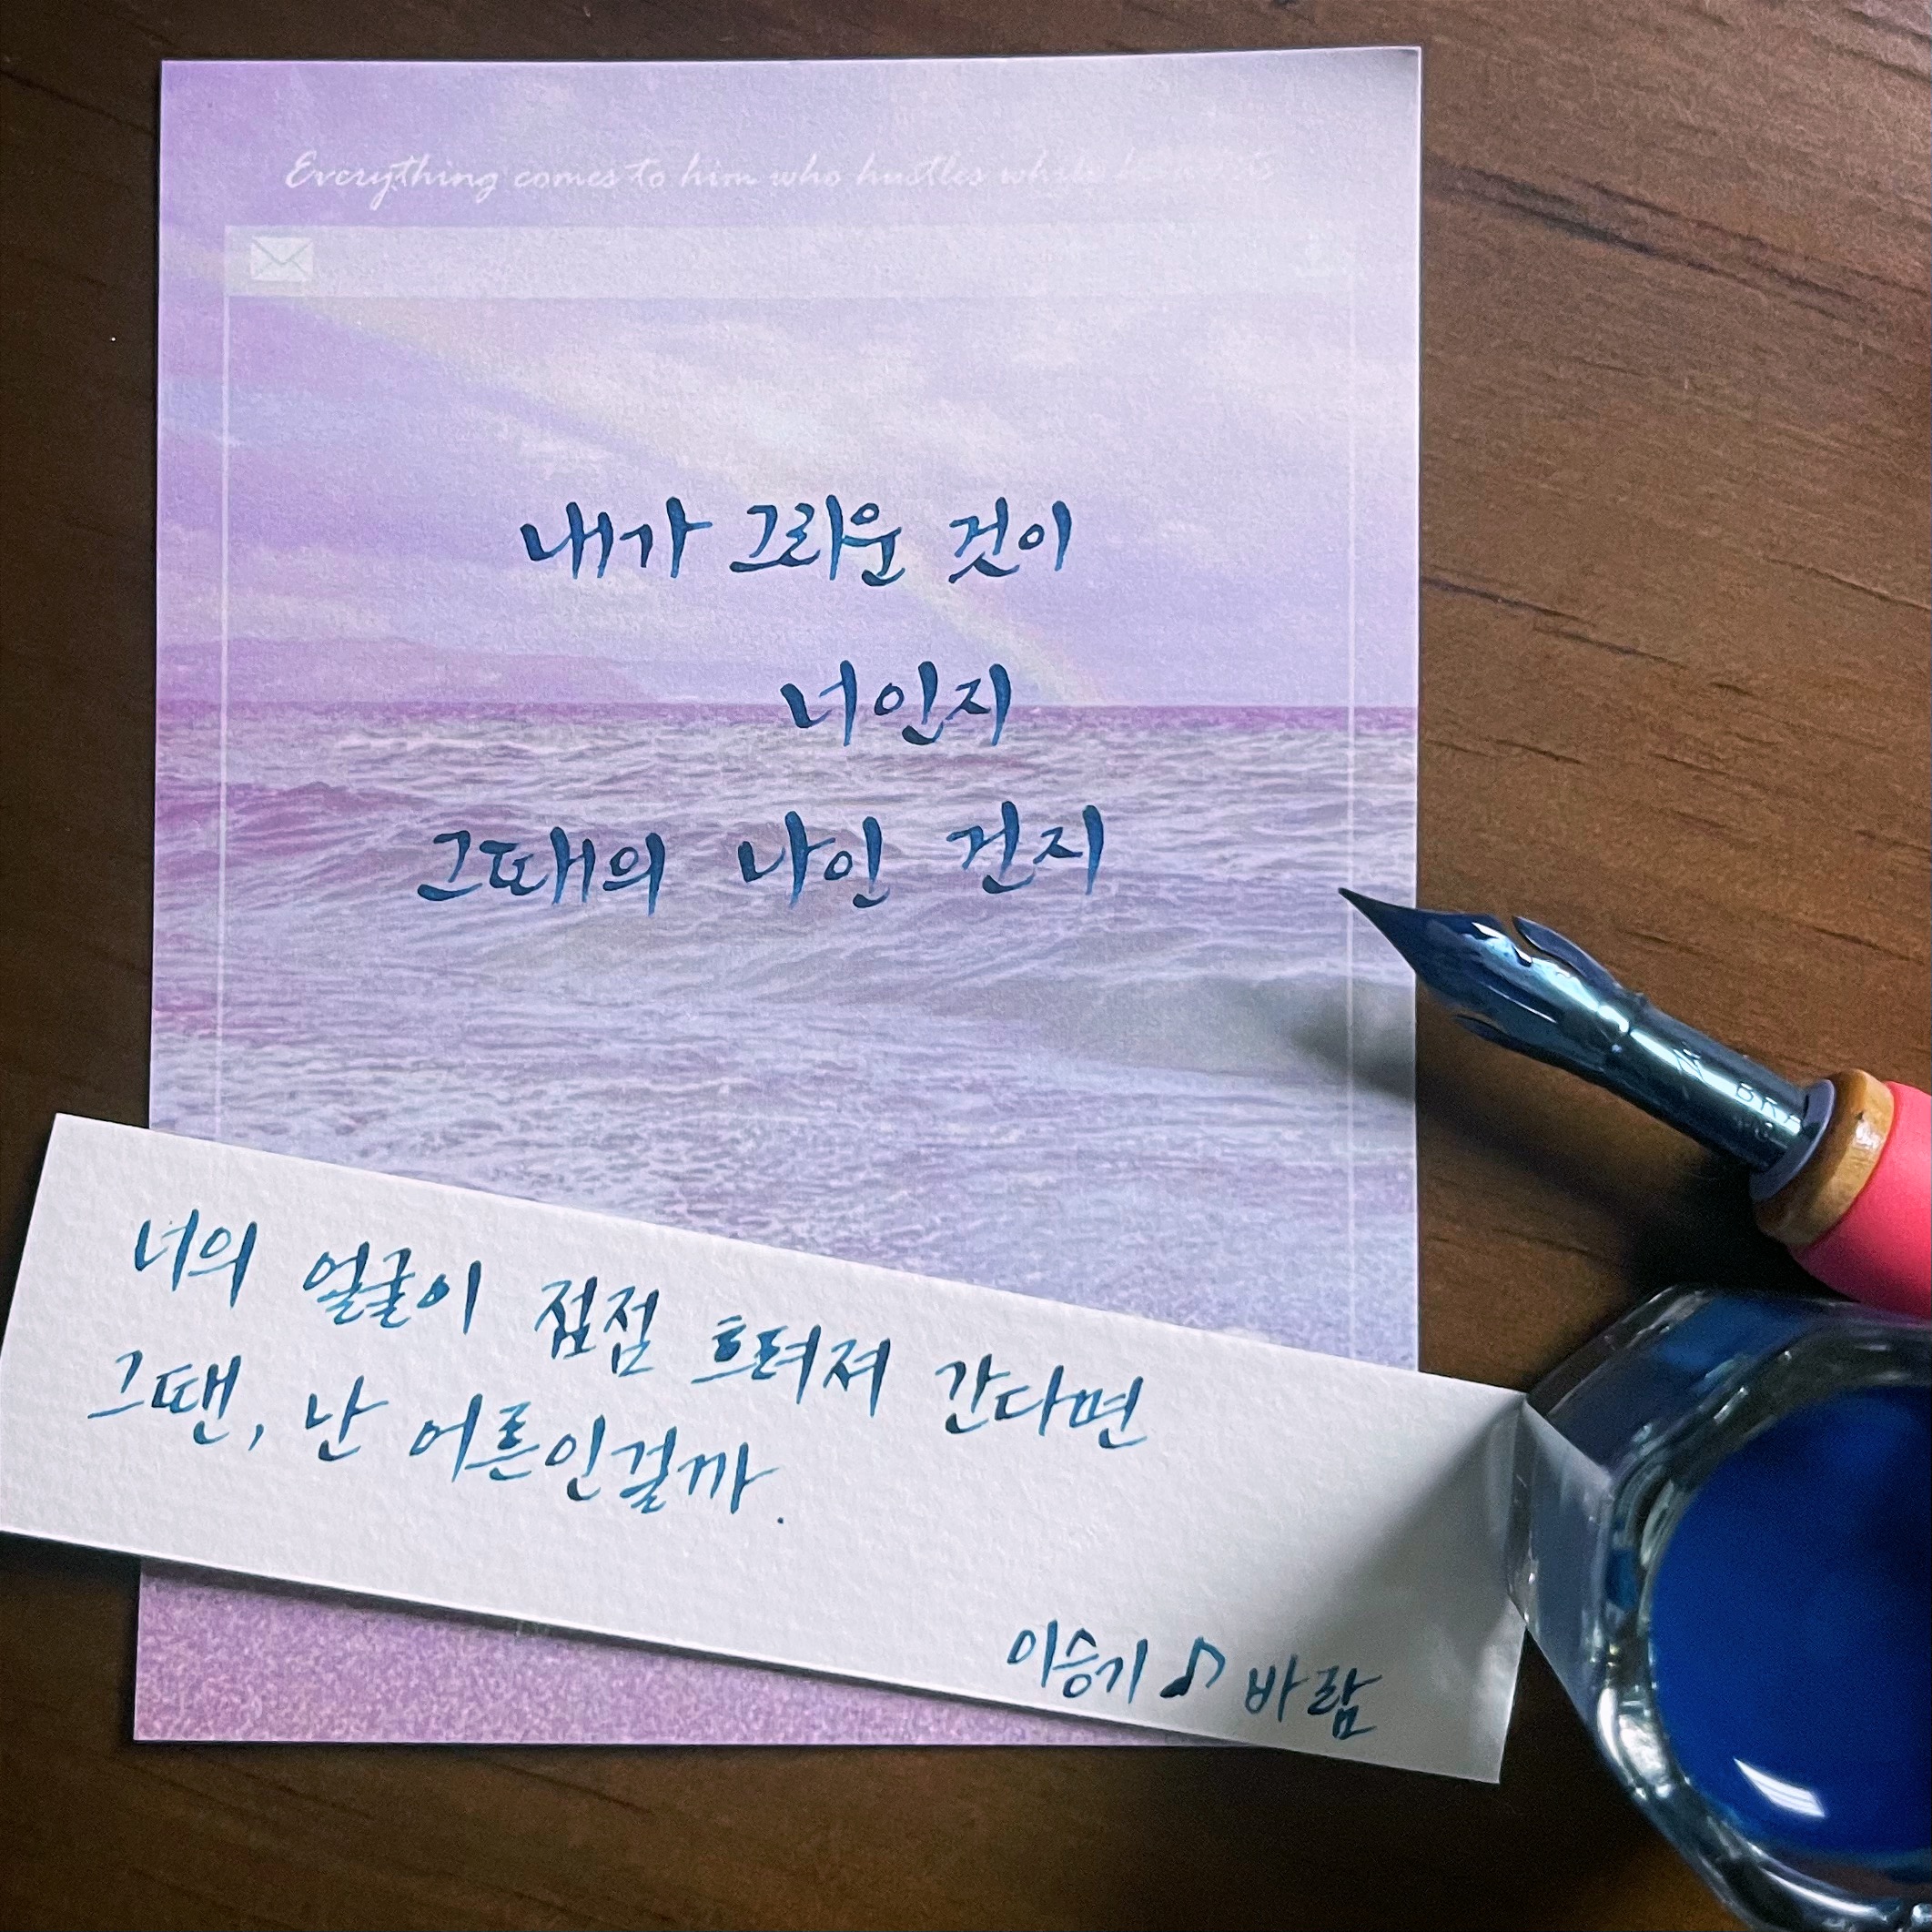 Everything comes to him who hustles while
내가 그리운 것이
너인지
그때의 나인 건지
너의 얼굴이 점점 흐려져 간다면
그땐, 난 어른인걸까.
이승기 ♪ 바람